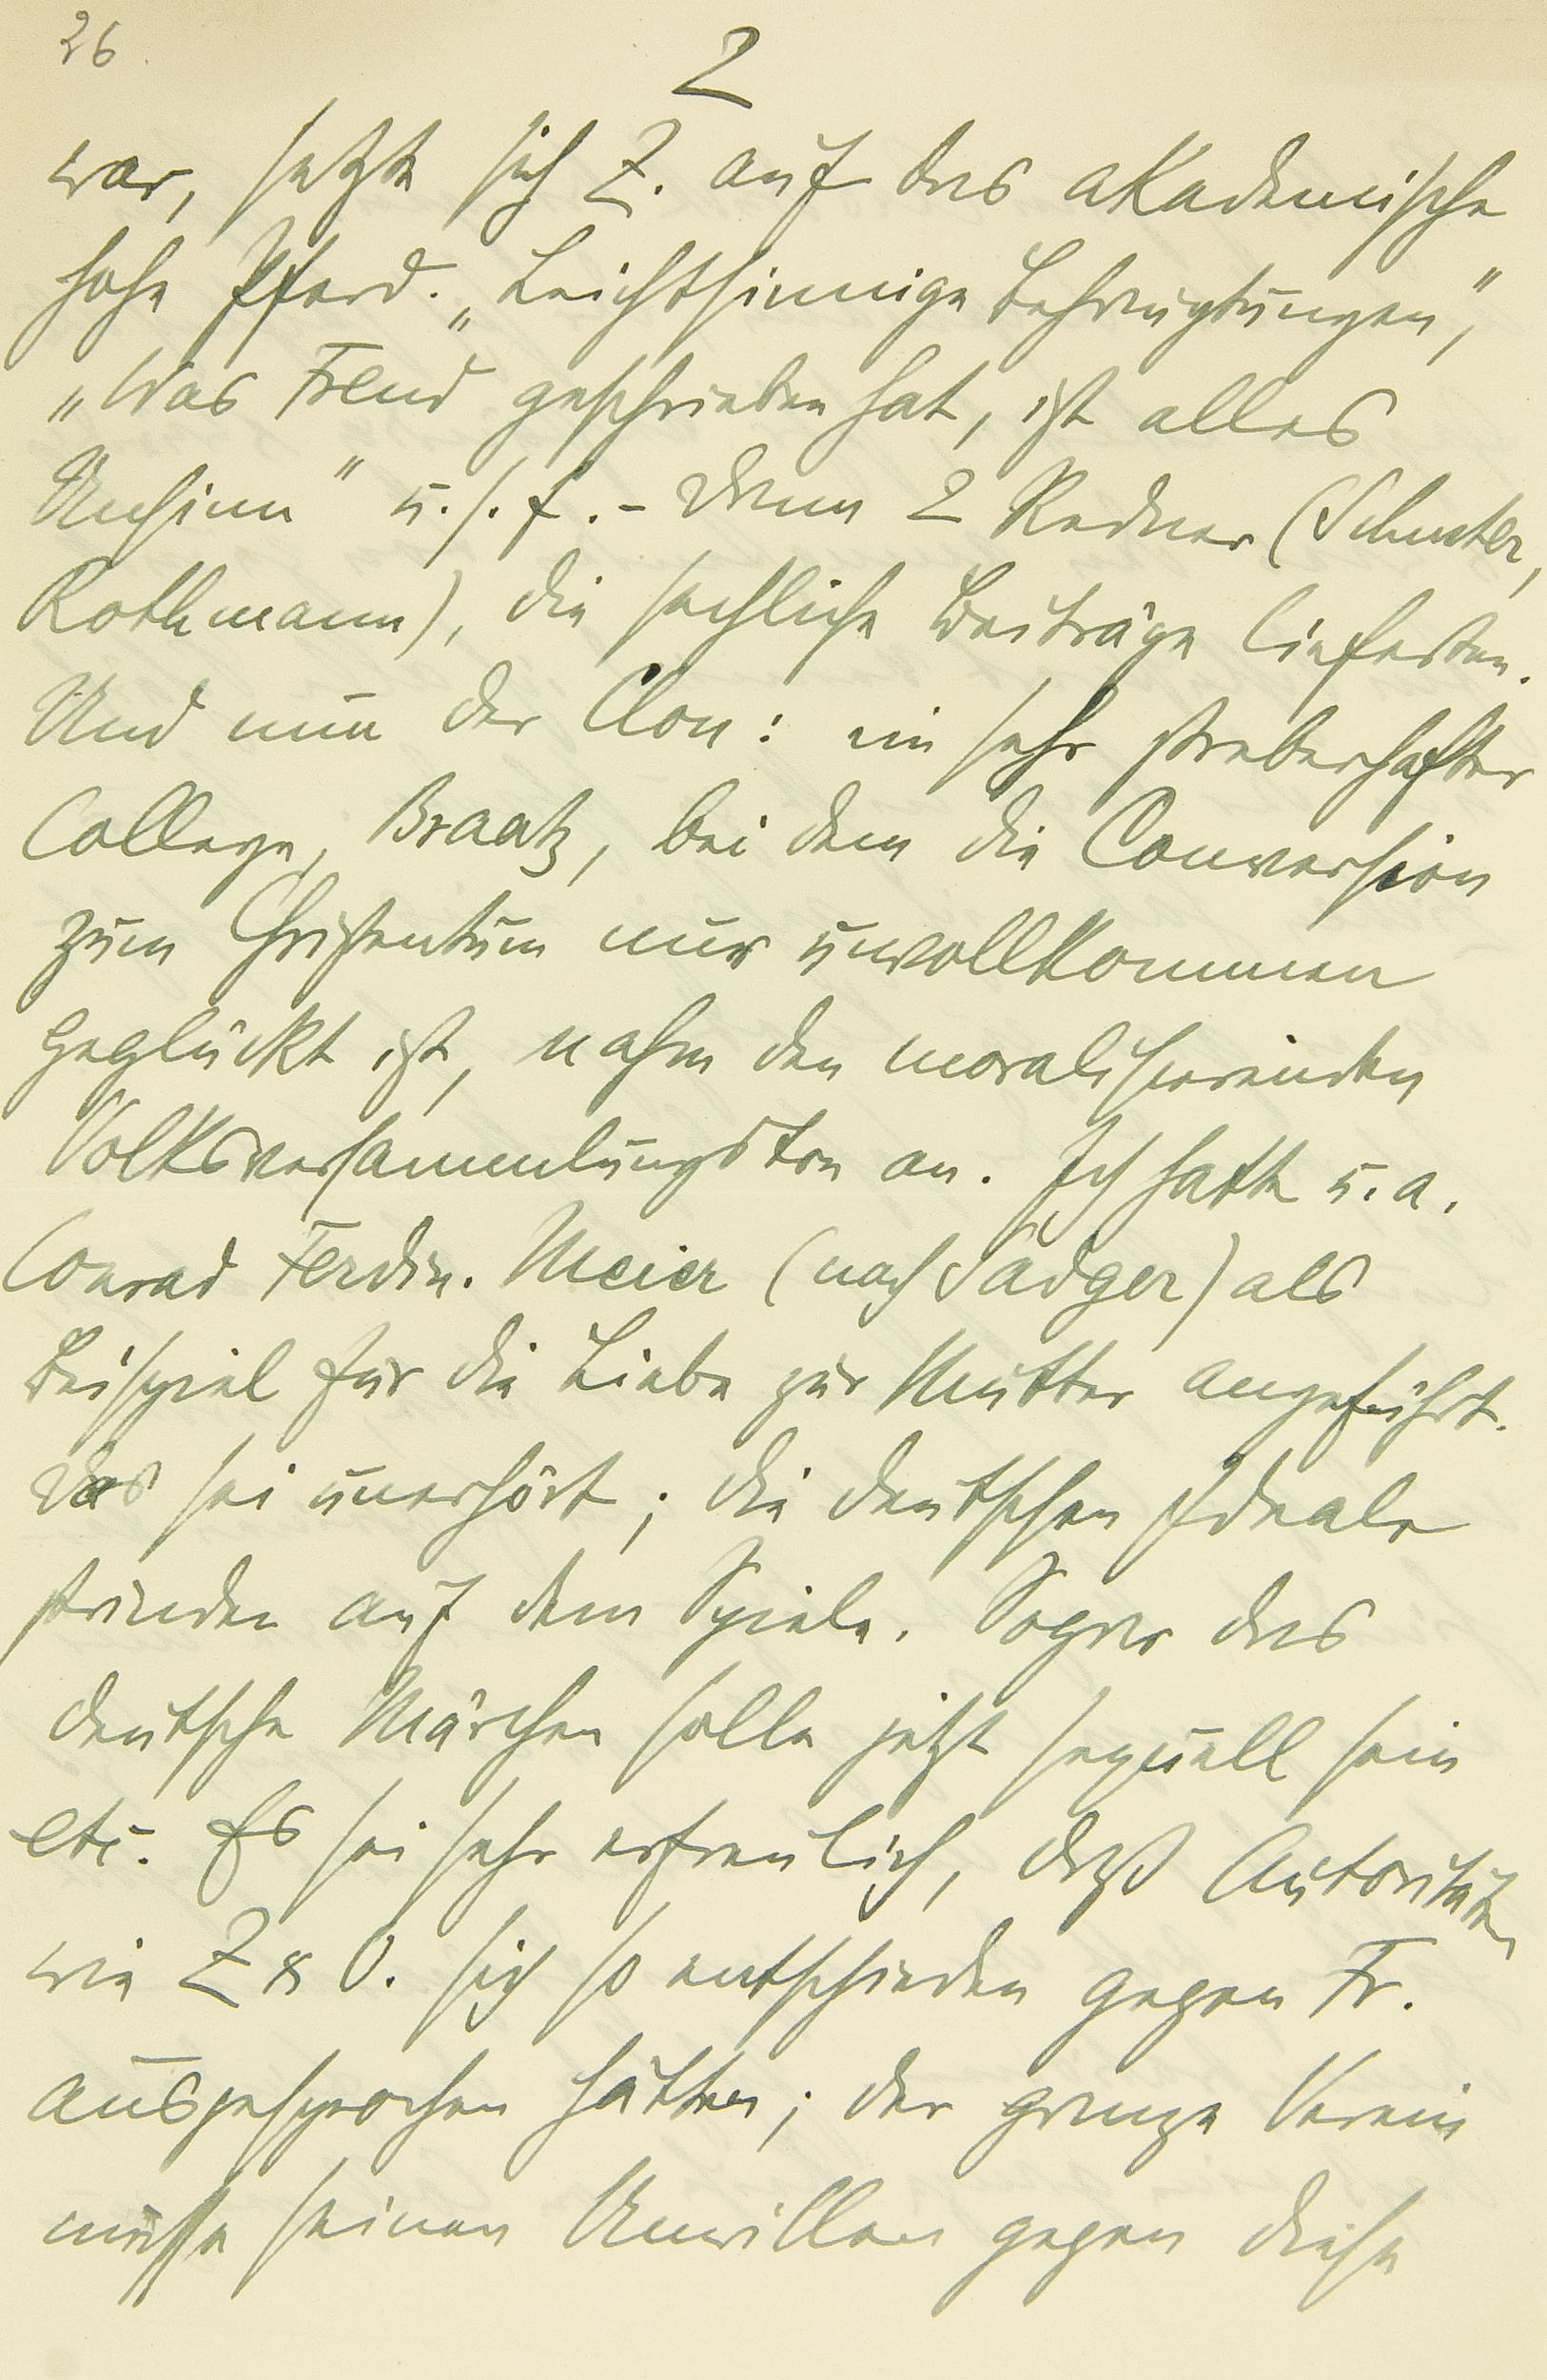 26.
2
war, setzte sich Z. auf das akademische
hohe Pferd. „Leichtsinnige Behauptungen",
„Was Freud geschrieben hat, ist alles
Unsinn" u. s. f. – Dann 2 Redner (Schuster,
Rothmann), die sachliche Beiträge lieferten.
Und nun der Clou: ein sehr streberhafter
College, Braatz, bei dem die Conversion
zum Christentum nur unvollkommen
geglückt ist, nahm den moralisierenden
Volksversammlungston an. Ich hatte u. a.
Conrad Ferdin. Meier (nach Sadger) als
Beispiel für die Liebe zur Mutter angeführt.
Das sei unerhört; die deutschen Ideale
stünden auf dem Spiele. Sogar das
deutsche Märchen solle jetzt sexuell sein
etc. Es sei sehr erfreulich, daß Autoritäten
wie Z & O. sich so entschieden gegen Fr.
ausgesprochen hätten; der ganze Verein
müsse seinen Unwillen gegen diese